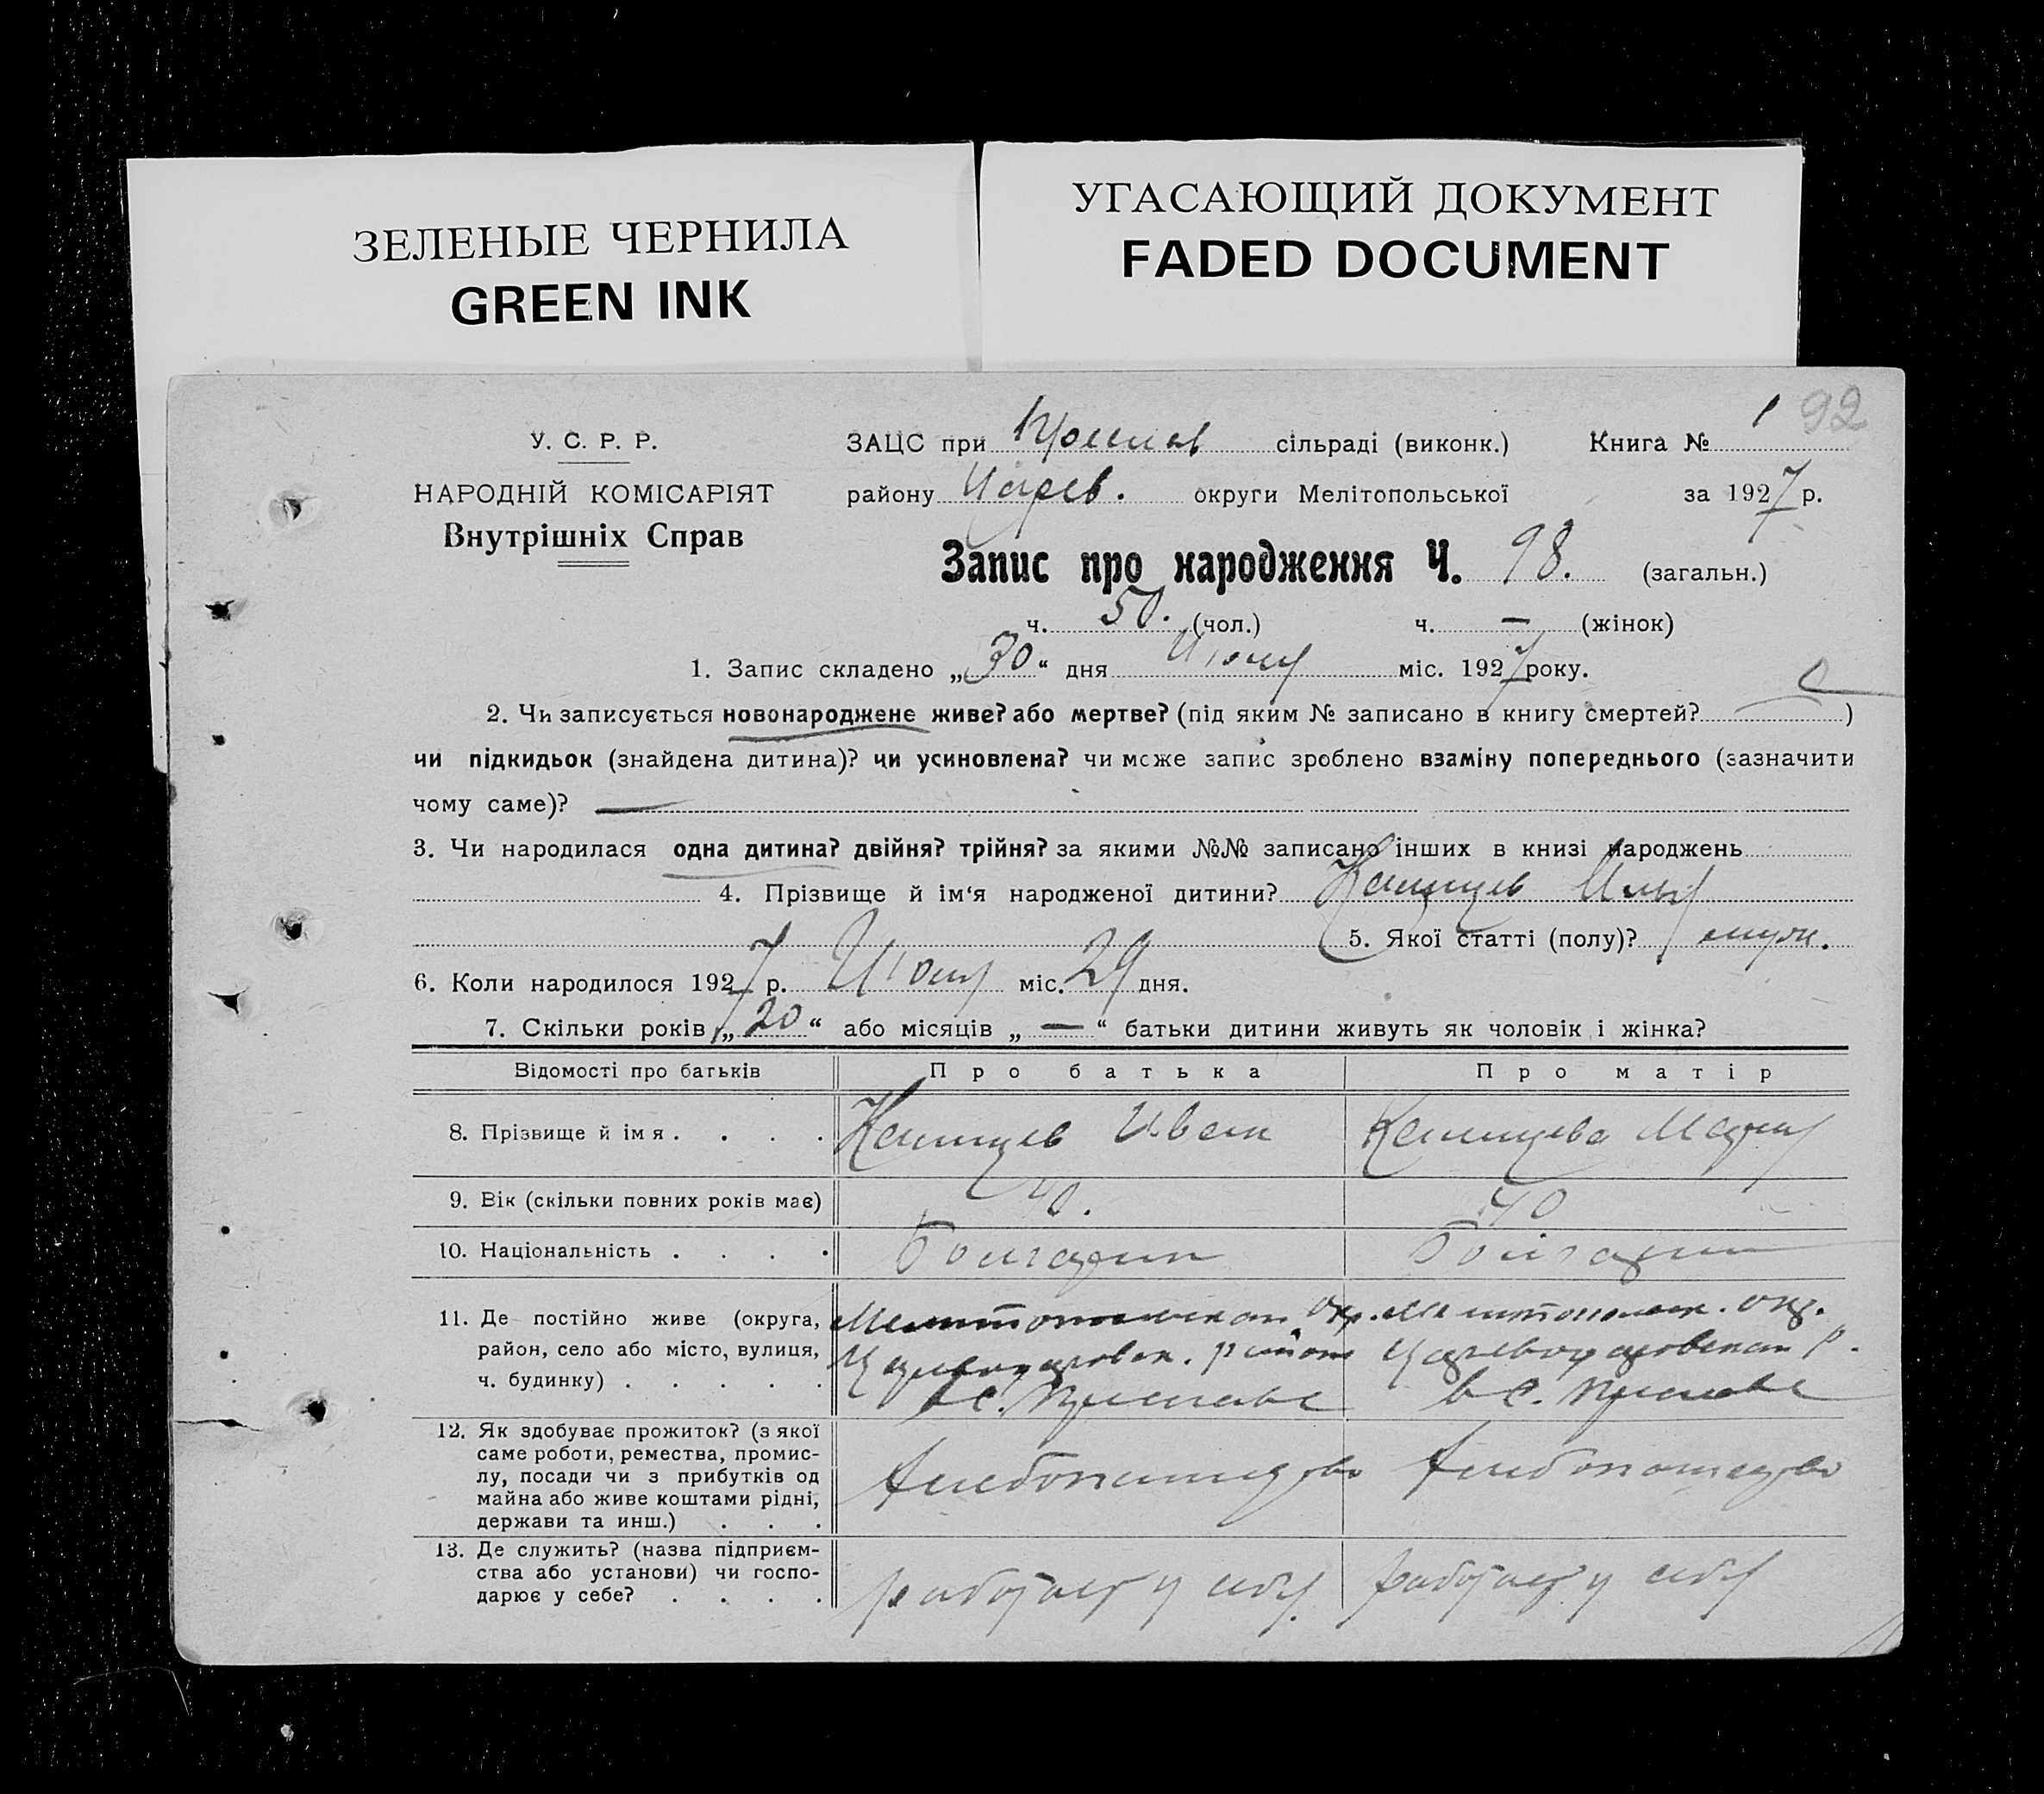 ЗЕЛЕНЫЕ ЧЕРНИЛА
GREEN INK
УГАСАЮЩИЙ ДОКУМЕНТ
FADED DOCUMENT
92
У. С. Р. Р.
НАРОДНІЙ КОМІСАРІЯТ
Внутрішніх Справ
ЗАЦС при сільраді (виконк.) Книга № 1
району Царев. округи Мелітопольської за 1927 р.
Запис про народження Ч. 98. (загальн.)
ч. 50. (чол.) ч. — (жінок)
1. Запис складено „30“ дня міс. 1927 року.
2. Чи записується новонароджене живе? або мертве? (під яким № записано в книгу смертей? )
чи підкидьок (знайдена дитина)? чи усиновлена? чи може запис зроблено взаміну попереднього (зазначити
чому саме)? —
3. Чи народилася одна дитина? двійня? трійня? за якими №№ записано інших в книзі народжень
4. Прізвище й ім‘я народженої дитини? Илья
5. Якої статті (полу)? муж.
6. Коли народилося 1927 р. міс. 29 дня.
7. Скільки років „20“ або місяців „—“ батьки дитини живуть як чоловік і жінка?
Відомості про батьків Про батька Про матір
8. Прізвище й імя . . . . Иван Мария
9. Вік (скільки повних років має) 40. 40
10. Національність . . . . Болгарин Болгарин
11. Де постійно живе (округа,
район, село або місто, вулиця,
ч. будинку) . . . . .
Мелитопольск. Окр. Мелитопольск. окр.
Цареводаровск. район Цареводаровскаи р.
в с. в с.
12. Як здобуває прожиток? (з якої
саме роботи, ремества, промис-
лу, посади чи з прибутків од
майна або живе коштами рідні,
держави та инш.) . . .
Хлебопашество Хлебопашество
13. Де служить? (назва підприєм-
ства або установи) чи госпо-
дарює у себе? . . . .
работает у себя работает у себя